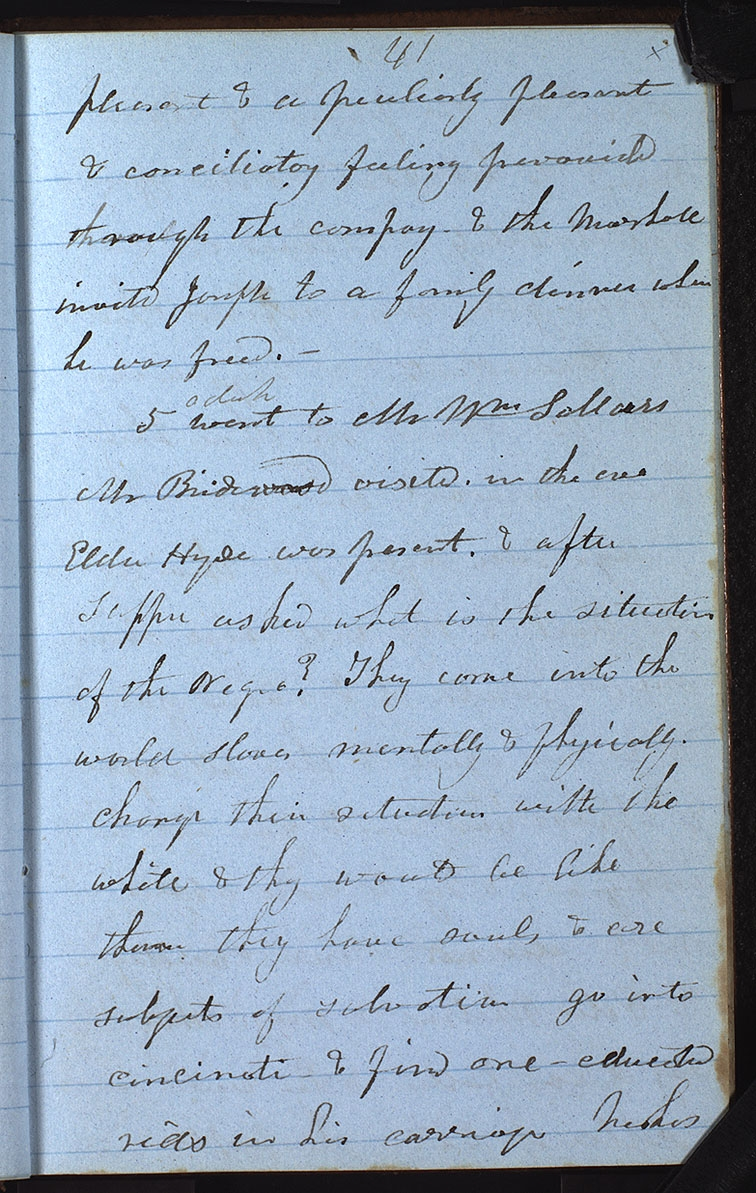 41 x
pleasant & a peculiarly pleasant
& conciliatoy feeling prevavied
through the compay. & the Marshall
invited Joseph to a family dinner when
he was freed. —
5 went to Mr Wm Sollars
Mr Bridewood visited. in the eve
Elder Hyde was present. & after
Supper asked what is the situation
of the Negro? They come into the
world slaves mentally & phyically.
change their situation with the
white & thy would be like
them they have souls & are
subjects of salvation go into
cincinati & find one educated
rides in his carriage he has